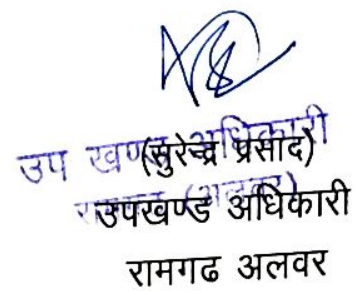 उप खण्ड अधिकारी
(सुरेन्द्र प्रसाद)
उपखण्ड अधिकारी
रामगढ अलवर